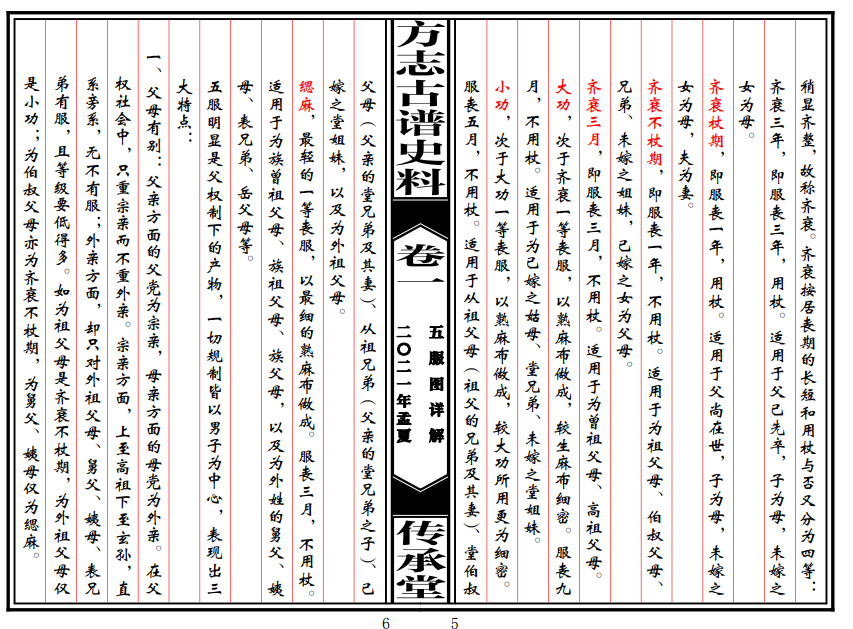 稍显齐整，故称齐衰。齐衰按居丧期的长短和用杖与否又分为四等：
齐衰三年，即服丧三年，用杖。适用于父已先卒，子为母，未嫁之
女为母。
齐衰杖期，即服丧一年，用杖。适用于父尚在世，子为母，未嫁之
女为母，夫为妻。
齐衰不杖期，即服丧一年，不用杖。适用于为祖父母、伯叔父母、
兄弟、未嫁之姐妹，已嫁之女为父母。
齐衰三月，即服丧三月，不用杖。适用于为曾祖父母、高祖父母。
大功，次于齐衰一等丧服，以熟麻布做成，较生麻布细密。服丧九
月，不用杖。适用于为已嫁之姑母、堂兄弟、未嫁之堂姐妹。
小功，次于大功一等丧服，以熟麻布做成，较大功所用更为细密。
服丧五月，不用杖。适用于从祖父母（祖父的兄弟及其妻）、堂伯叔
方志古谱史料
卷一
五服图详解
二〇二一年孟夏
传承堂
父母（父亲的堂兄弟及其妻）、从祖兄弟（父亲的堂兄弟之子）、已
嫁之堂姐妹，以及为外祖父母。
缌麻，最轻的一等丧服，以最细的熟麻布做成。服丧三月，不用杖。
适用于为族曾祖父母、族祖父母、族父母，以及为外姓的舅父、姨
母、表兄弟、岳父母等。
五服明显是父权制下的产物，一切规制皆以男子为中心，表现出三
大特点：
一、父母有别：父亲方面的父党为宗亲，母亲方面的母党为外亲。在父
权社会中，只重宗亲而不重外亲。宗亲方面，上至高祖下至玄孙，直
系旁系，无不有服；外亲方面，却只对外祖父母、舅父、姨母、表兄
弟有服，且等级要低得多。如为祖父母是齐衰不杖期，为外祖父母仅
是小功；为伯叔父母亦为齐衰不杖期，为舅父、姨母仅为缌麻。
6
5